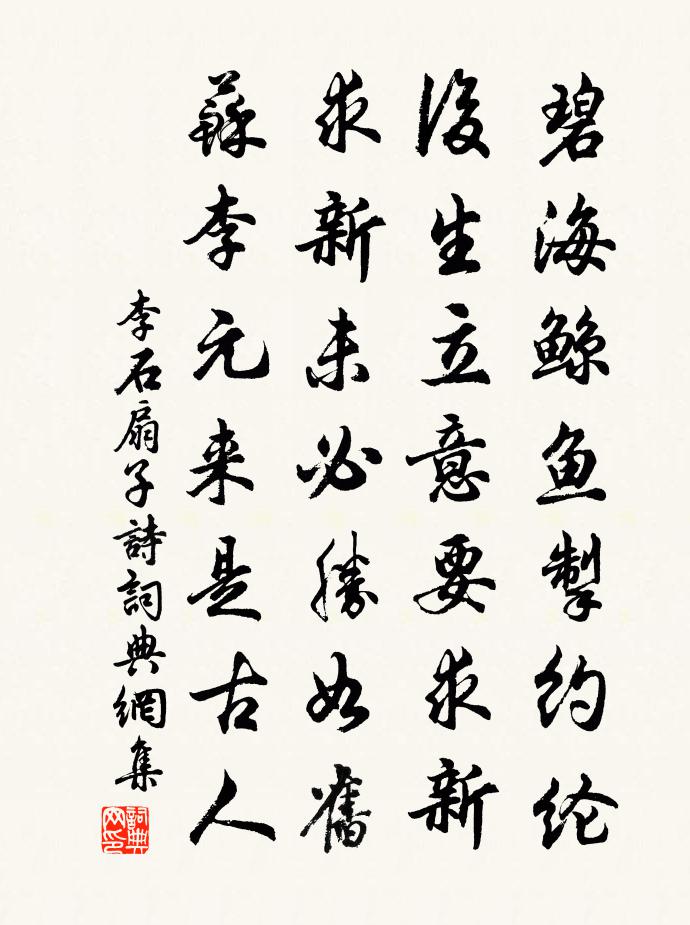 碧海鲸鱼掣约纶
後生立意要求新
求新未必勝如舊
蘇李元来是古人
李石扇子詩詞典網集
詞典網印